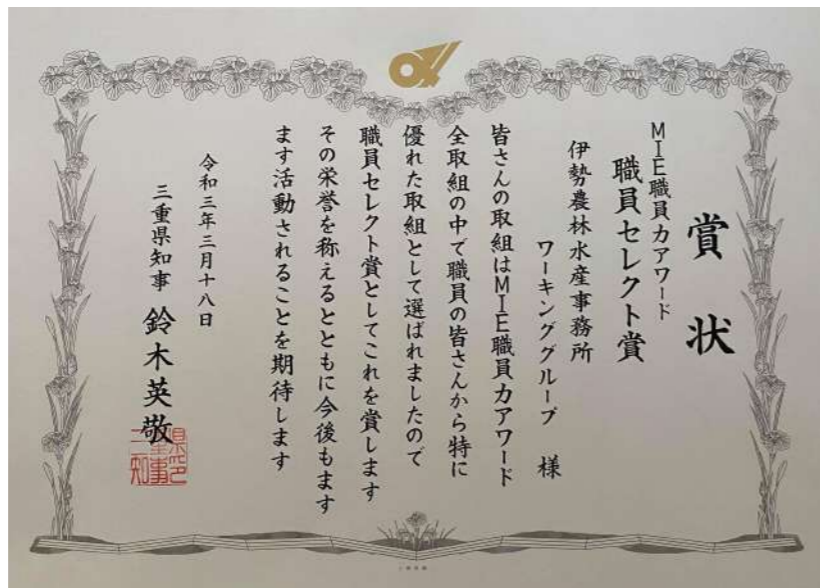 賞状
MIE職員力アワード
職員セレクト賞
伊勢農林水産事務所
ワーキンググループ 様
皆さんの取組はMIE職員力アワード
全取組の中で職員の皆さんから特に
優れた取組として選ばれましたので
職員セレクト賞としてこれを賞します
その栄誉を称えるとともに今後もます
ます活動されることを期待します
令和三年三月十八日
三重県知事 鈴木英敬